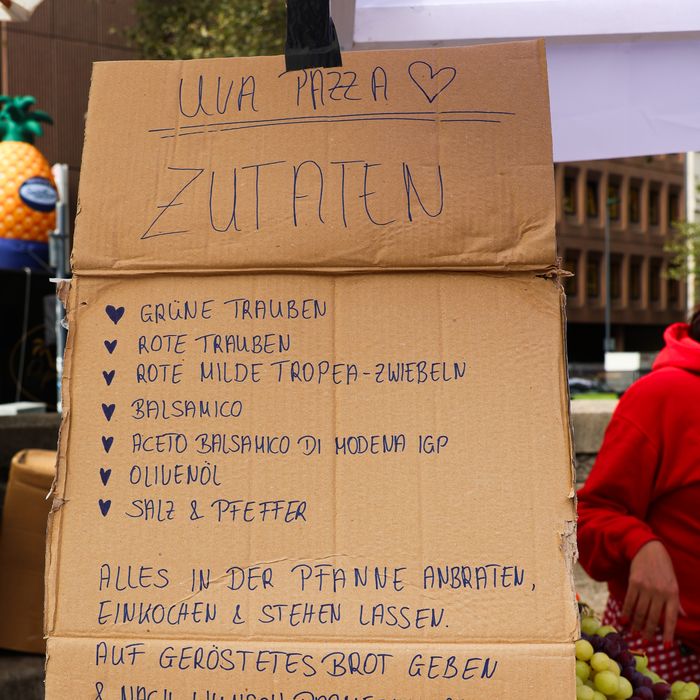 UVA PAZZA
ZUTATEN
GRÜNE TRAUBEN
ROTE TRAUBEN
ROTE MILDE TROPEA-ZWIEBELN
BALSAMICO
ACETO BALSAMICO DI MODENA IGP
OLIVENÖL
SALZ & PFEFFER
ALLES IN DER PFANNE ANBRATEN,
EINKOCHEN & STEHEN LASSEN.
AUF GERÖSTETES BROT GEBEN
& NACH WUNSCH